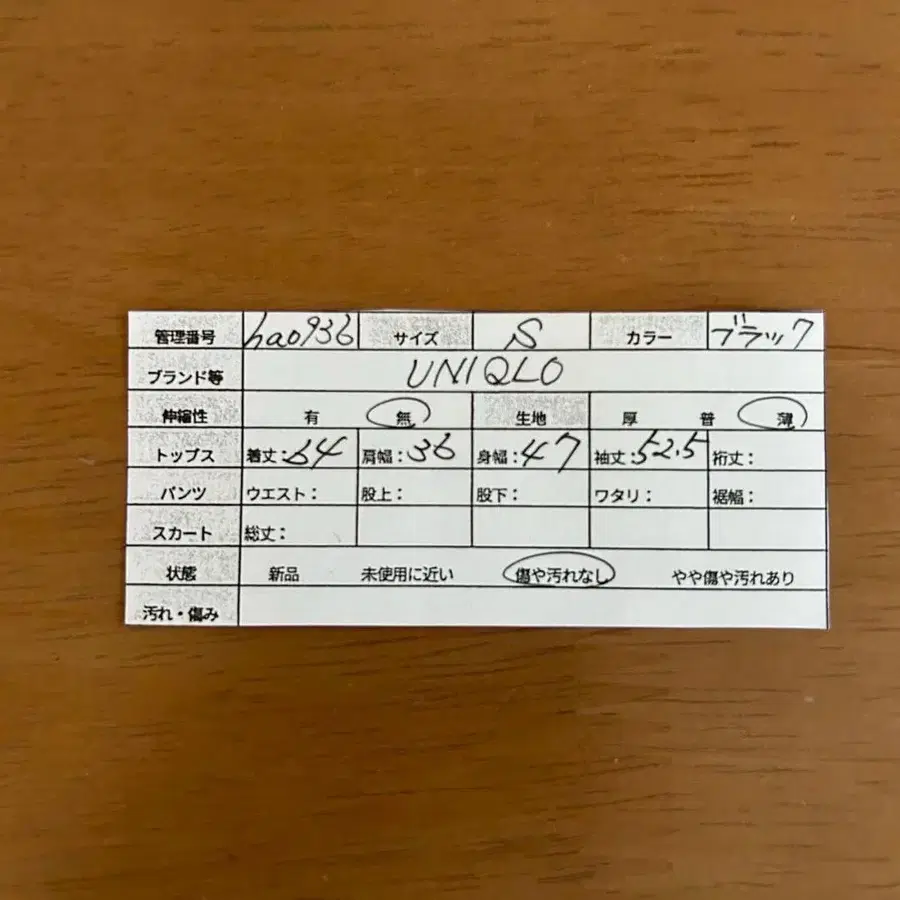 管理番号 hao936 サイズ S カラー ブラック
ブランド等 UNIQLO
伸縮性 有 無 生地 厚 普 薄
トップス 着丈:64 肩幅:36 身幅:47 袖丈:52.5 裄丈:
パンツ ウエスト: 股上: 股下: ワタリ: 裾幅:
スカート 総丈:
状態 新品 未使用に近い 傷や汚れなし やや傷や汚れあり
汚れ・傷み